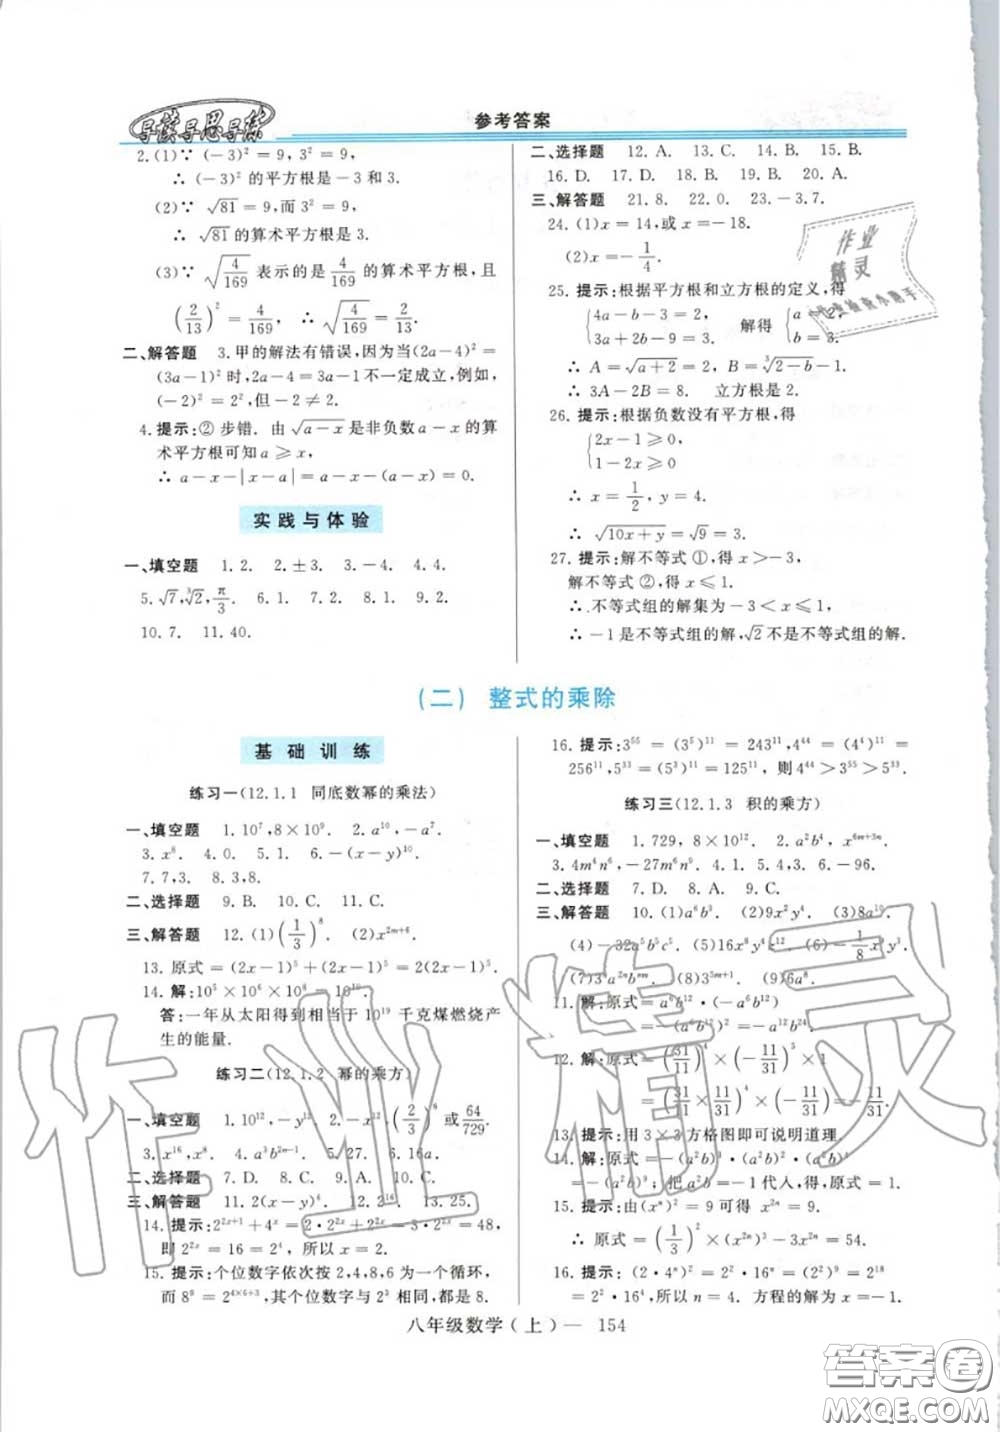 导读导思导练
参考答案
2.(1)∵ (-3)² = 9, 3² = 9,
∴ (-3)² 的平方根是-3 和 3.
(2)∵ √81 = 9,而 3² = 9,
∴ √81 的算术平方根是 3.
(3)∵ √(4/169) 表示的是 4/169 的算术平方根，且
(2/13)² = 4/169, ∴ √(4/169) = 2/13.
二、解答题 3.甲的解法有错误,因为当(2a-4)² =
(3a-1)² 时,2a-4=3a-1 不一定成立,例如,
(-2)² = 2²,但-2 ≠ 2.
4.提示:② 步错. 由 √(a-x) 是非负数 a-x 的算
术平方根可知 a ⩾ x,
∴ a-x-|x-a| = a-x-(a-x) = 0.
实践与体验
一、填空题 1.2. 2.±3. 3.-4. 4.4.
5.√7,³√2,π/3. 6.1. 7.2. 8.1. 9.2.
10.7. 11.40.
二、选择题 12.A. 13.C. 14.B. 15.B.
16.D. 17.D. 18.B. 19.B. 20.A.
三、解答题 21.8. 22.0. 23.-3,7.
24.(1)x = 14,或 x=-18.
(2)x=-1/4.
25.提示:根据平方根和立方根的定义,得
{4a-b-3 = 2, 3a+2b-9 = 3, 解得 {a = 2, b = 3.
∴ A = √(a+2) = 2, B = ³√(2-b)-1.
∴ 3A-2B = 8. 立方根是 2.
26.提示:根据负数没有平方根,得
{2x-1 ⩾ 0,
1-2x ⩾ 0.
∴ x = 1/2, y = 4.
∴ √(10x+y) = √9 = 3.
27.提示:解不等式 ①,得 x >-3,
解不等式 ②,得 x ⩽ 1.
∴ 不等式组的解集为-3 < x ⩽ 1.
∴ -1 是不等式组的解,√2 不是不等式组的解.
(二) 整式的乘除
基础训练
练习一(12.1.1 同底数幂的乘法)
一、填空题 1.10⁷,8×10⁹. 2.a¹⁰,-a⁷.
3.x⁸. 4.0. 5.1. 6.-(x-y)¹⁰.
7.7,3. 8.3,8.
二、选择题 9.B. 10.C. 11.C.
三、解答题 12.(1)(1/3)⁸. (2)x²ᵐ⁺⁶.
13.原式 = (2x-1)⁵+(2x-1)⁵ = 2(2x-1)⁵.
14.解:10⁵×10⁶×10⁸ = 10¹⁹.
答:一年从太阳得到相当于 10¹⁹ 千克煤燃烧产
生的能量.
练习二(12.1.2 幂的乘方)
一、填空题 1.10¹²,-y⁶. 2.-x⁶,(2/3)⁶ 或 64/729.
3.x¹⁶,x⁸. 4.a²b²ᵐ⁻¹. 5.27. 6.16a.
二、选择题 7.D. 8.C. 9.A. 10.C.
三、解答题 11.2(x-y)⁶. 12.2¹⁶. 13.25.
14.提示:2²ˣ⁺¹+4ˣ = 2·2²ˣ+2²ˣ = 3·2²ˣ = 48,
即 2²ˣ = 16 = 2⁴, 所以 x = 2.
15.提示:个位数字依次按 2,4,8,6 为一个循环,
而 8⁹ = 2⁴ˣ⁶⁺³,其个位数字与 2³ 相同,都是 8.
16.提示:3⁵⁵ = (3⁵)¹¹ = 243¹¹,4⁴⁴ = (4⁴)¹¹ =
256¹¹,5³³ = (5³)¹¹ = 125¹¹, 则 4⁴⁴ > 3⁵⁵ > 5³³.
练习三(12.1.3 积的乘方)
一、填空题 1.729, 8×10¹². 2.a²b⁴, x⁶ᵐ⁺³ⁿ.
3.4m⁴n⁶,-27m⁶n⁹. 4.1. 5.4. 6.-96.
二、选择题 7.D. 8.A. 9.C.
三、解答题 10.(1)a⁶b³. (2)9x²y⁴. (3)8a¹⁹.
(4)-32a⁵b⁵c⁵. (5)16x⁸y⁴z¹². (6)-1/8x⁶y³.
(7)3ᵐa²ⁿbᵐ. (8)3⁵ᵐ⁺¹. (9)6a⁸.
11.解:原式 = a⁶b¹²·(-a⁶b¹²)
=-(a⁶b¹²)² =-a¹²b²⁴.
12.解:原式 = (31/11)⁴×(-11/31)⁵×1
= (31/11×11/31)⁴×(-11/31) =-11/31.
13.提示:用 3×3 方格图即可说明道理.
14.解:原式 =-(a²b)·(a²b)²·(a²b)³
=-(a²b)⁶; 把 a²b =-1 代入,得,原式 =-1.
15.提示:由(xⁿ)² = 9 可得 x²ⁿ = 9.
∴ 原式 = (1/3)²×(x²ⁿ)³-3x²ⁿ = 54.
16.提示:(2·4ⁿ)² = 2²·16ⁿ = (2⁹)² = 2¹⁸
= 2²·16⁴,所以 n = 4. 方程的解为 x =-1.
八年级数学(上)— 154
作业
精灵
作业精灵
答案圈
MXQE.COM